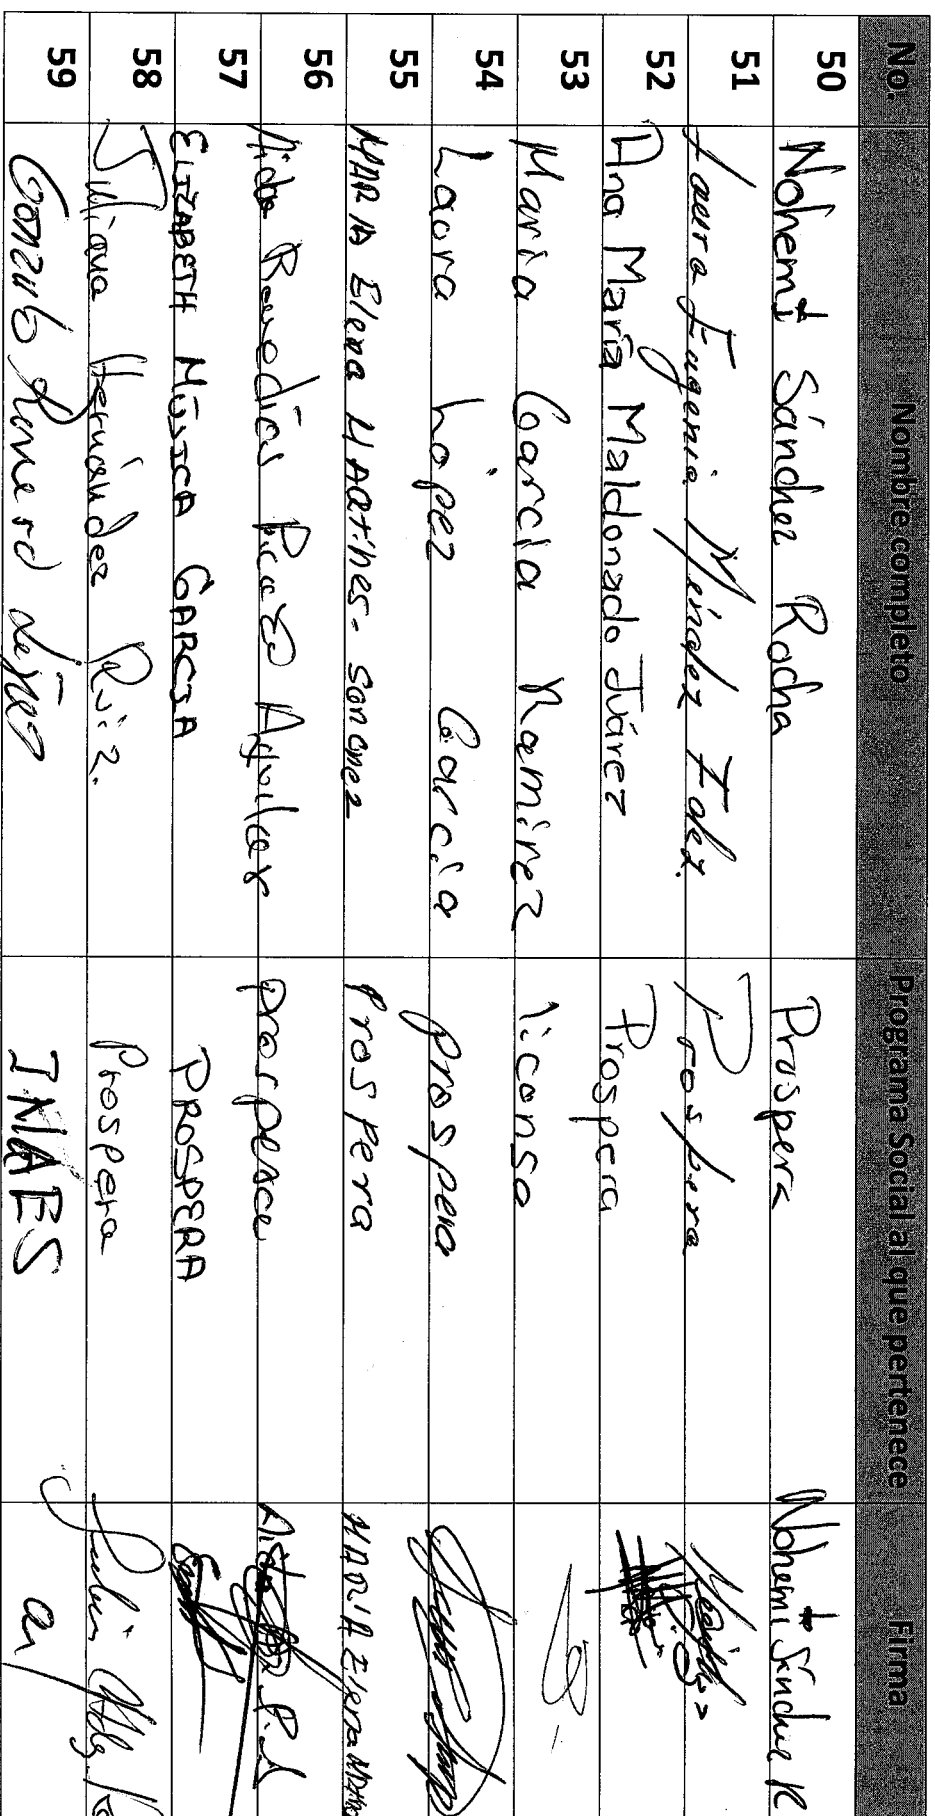 No. Nombre completo Programa Social al que pertenece Firma
50 Nohemí Sánchez Rocha Prospera Nohemí Sánchez R
51 Laura Eugenia Méndez Prospera
52 Ana María Maldonado Juárez Prospera
53 Maria Garcia Ramírez liconsa
54 Laura López Garcia prospera
55 MARIA Elena MARtines - Sanchez Prospera MARIA Elena
56 Aida Remedios Picazo Aguilar prospera Aida P. A
57 ELIZABETH MÚJICA GARCIA PROSPERA
58 Juliana Hernández Ruiz. Prospera
59 Gonzalo Romero INAES